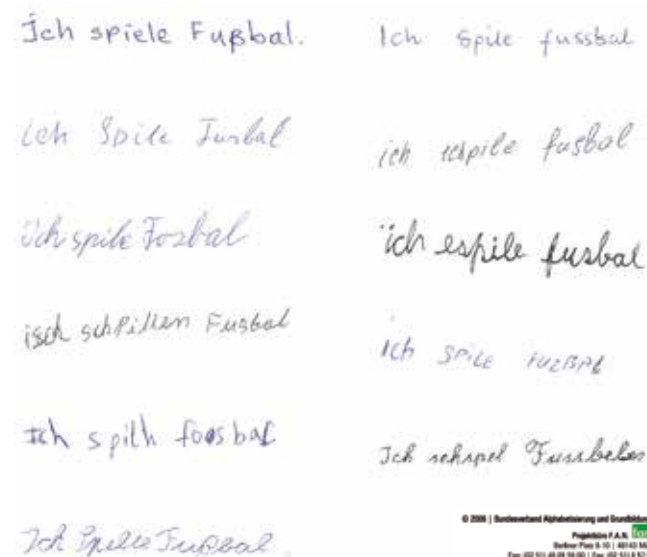 Ich spiele Fußbal.
ich Spile Fusbal
ich spile Fosbal
isch schpillen Fusbal
Ich spilh foosbal
Ich Spielle Fussbal
Ich Spile fussbal
ich schpile fusbal
ich espile fusbal
Ich SPILE
Ich schspel
© 2006 | Bundesverband Alphabetisierung und Grundbildung
Projektbüro F.A.N.